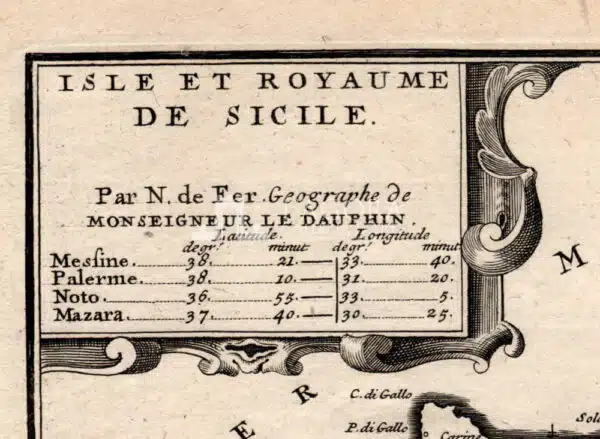 ISLE ET ROYAUME
DE SICILE.
Par N. de Fer. Geographe de
MONSEIGNEUR LE DAUPHIN.
Latitude. Longitude
degr. minut degr. minut
Meſsine. 38. 21. 33. 40.
Palerme. 38. 10. 31. 20.
Noto. 36. 55. 33. 5.
Mazara. 37. 40. 30. 25.
M
E R
C. di Gallo
P. di Gallo
Carine